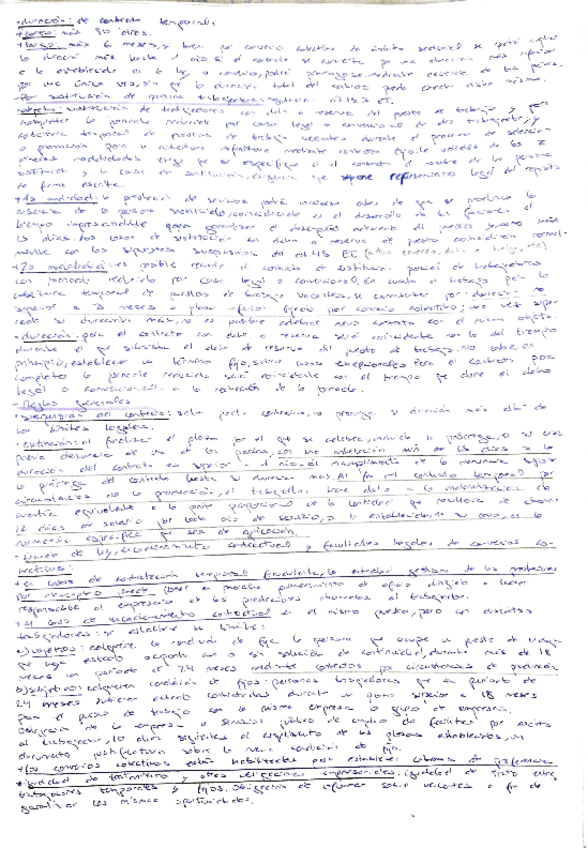 ·duración: de contrato temporal:
+corto: máx 90 días.
+largo: máx 6 meses, si bien por convenio colectivo de ámbito sectorial se podrá ampliar
la duración máx hasta 1 año si el contrato se concierta por una duración inferior
a la establecida en la ley o convenio, podrá prorrogarse, mediante acuerdo de las partes,
por una única vez, sin que la duración total del contrato pueda exceder dicha máxima.
-Por sustitución de persona trabajadora: art 15.3 ET.
·objeto: sustitución de trabajadores con dcho a reserva del puesto de trabajo y para
completar la jornada reducida por causa legal o convencional de otro trabajador, y
cobertura temporal de puestos de trabajo vacante durante el proceso de selección
o promoción para su cobertura definitiva mediante contrato fijo. La validez de las 2
primeras modalidades exige que se especifique en el contrato el nombre de la persona
sustituida y la causa de sustitución, exigencia que supone
de forma escrita.
+1ª modalidad: la prestación de servicios podrá iniciarse antes de que se produzca la
ausencia de la persona sustituida, coincidiendo en el desarrollo de las funciones el
tiempo imprescindible para garantizar el desempeño adecuado del puesto y como máx
15 días. Los casos de sustitución con dcho a reserva de puesto coinciden normal-
mente con los supuestos suspensivos del art 45 ET
+2ª modalidad: es posible
con jornada reducida por causa legal o convencional. En cuanto al trabajo para la
cobertura temporal de puestos de trabajo vacantes, se caracteriza por: duración no
superior a 3 meses o plazo inferior fijado por convenio colectivo; una vez supe-
rada su duración máx, no es posible celebrar nuevo contrato con el mismo objeto.
·duración: para el contrato con dcho a reserva será coincidente con la del tiempo
durante el que subsista el dcho de reserva del puesto de trabajo, no cabe en
principio, establecer un término fijo, salvo casos excepcionales. Para el contrato para
completar la jornada reducida será coincidente con el tiempo que dure el dcho
legal o convencional a la reducción de la jornada.
-Reglas generales
·suspensión del contrato:
los límites legales.
·extinción: al finalizar el plazo por el que se celebre, incluida la prórroga,
previa denuncia de una de las partes, con una antelación mín de 15 días si la
duración del contrato es superior a 1 año. El incumplimiento de la denuncia
la prórroga del contrato hasta su duración máx. Al fin del contrato temporal por
circunstancias de la producción, el trabajador tiene dcho a la indemnización de
cuantía equivalente a la parte proporcional de la cantidad que resultaría de abonar
12 días de salario por cada año de servicio, o la establecida, en su caso, en la
normativa específica que sea de aplicación.
-Fraude de ley, encadenamiento contractual y facultades legales de convenios co-
lectivos:
+en casos de contratación temporal fraudulenta, la entidad gestora de las prestaciones
por desempleo puede poner en marcha procedimiento de oficio dirigido a hacer
responsable al empresario de las prestaciones abonadas al trabajador.
+el caso de encadenamiento contractual en el mismo puesto, pero con distintos
trabajadores: se establece un límite:
a) objetivo: adquiere la condición de fija la persona que ocupe un puesto de trabajo
que haya estado ocupado con o sin solución de continuidad, durante más de 18
meses en periodo de 24 meses mediante contratos por circunstancias de producción.
b) subjetivo: adquieren condición de fijos: personas trabajadoras que en periodo de
24 meses hubieran estado contratadas durante un plazo superior a 18 meses
para el puesto de trabajo con la misma empresa o grupo de empresas.
Obligación de la empresa o servicio público de empleo de facilitar por escrito
al trabajador, 10 días siguientes al cumplimiento de los plazos establecidos, un
documento justificativo sobre la nueva condición de fijo.
+los convenios colectivos están habilitados para establecer criterios de preferencia
+igualdad de tratamiento y otras obligaciones empresariales: igualdad de trato entre
trabajadores temporales y fijos. Obligación de informar sobre vacantes a fin de
garantizar las mismas oportunidades.